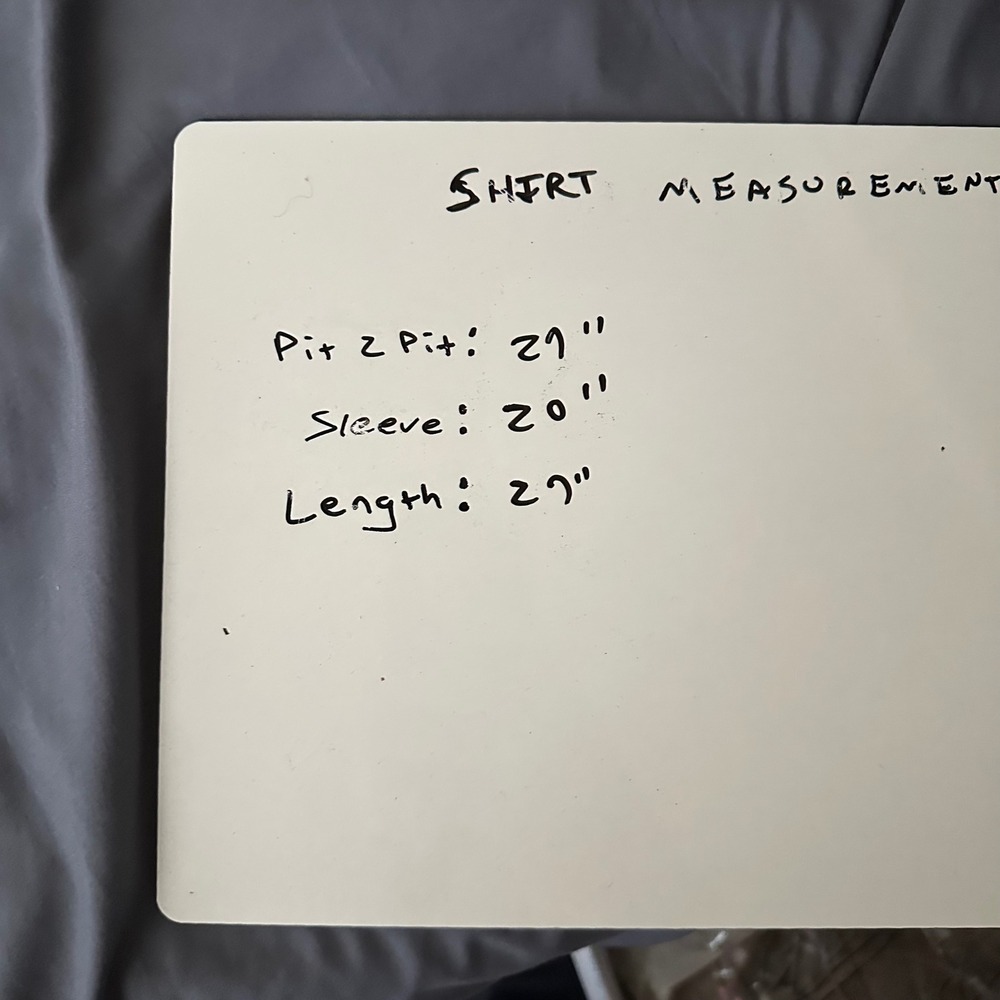 SHIRT MEASUREMENT
Pit 2 Pit: 29"
Sleeve: 20"
Length: 29"